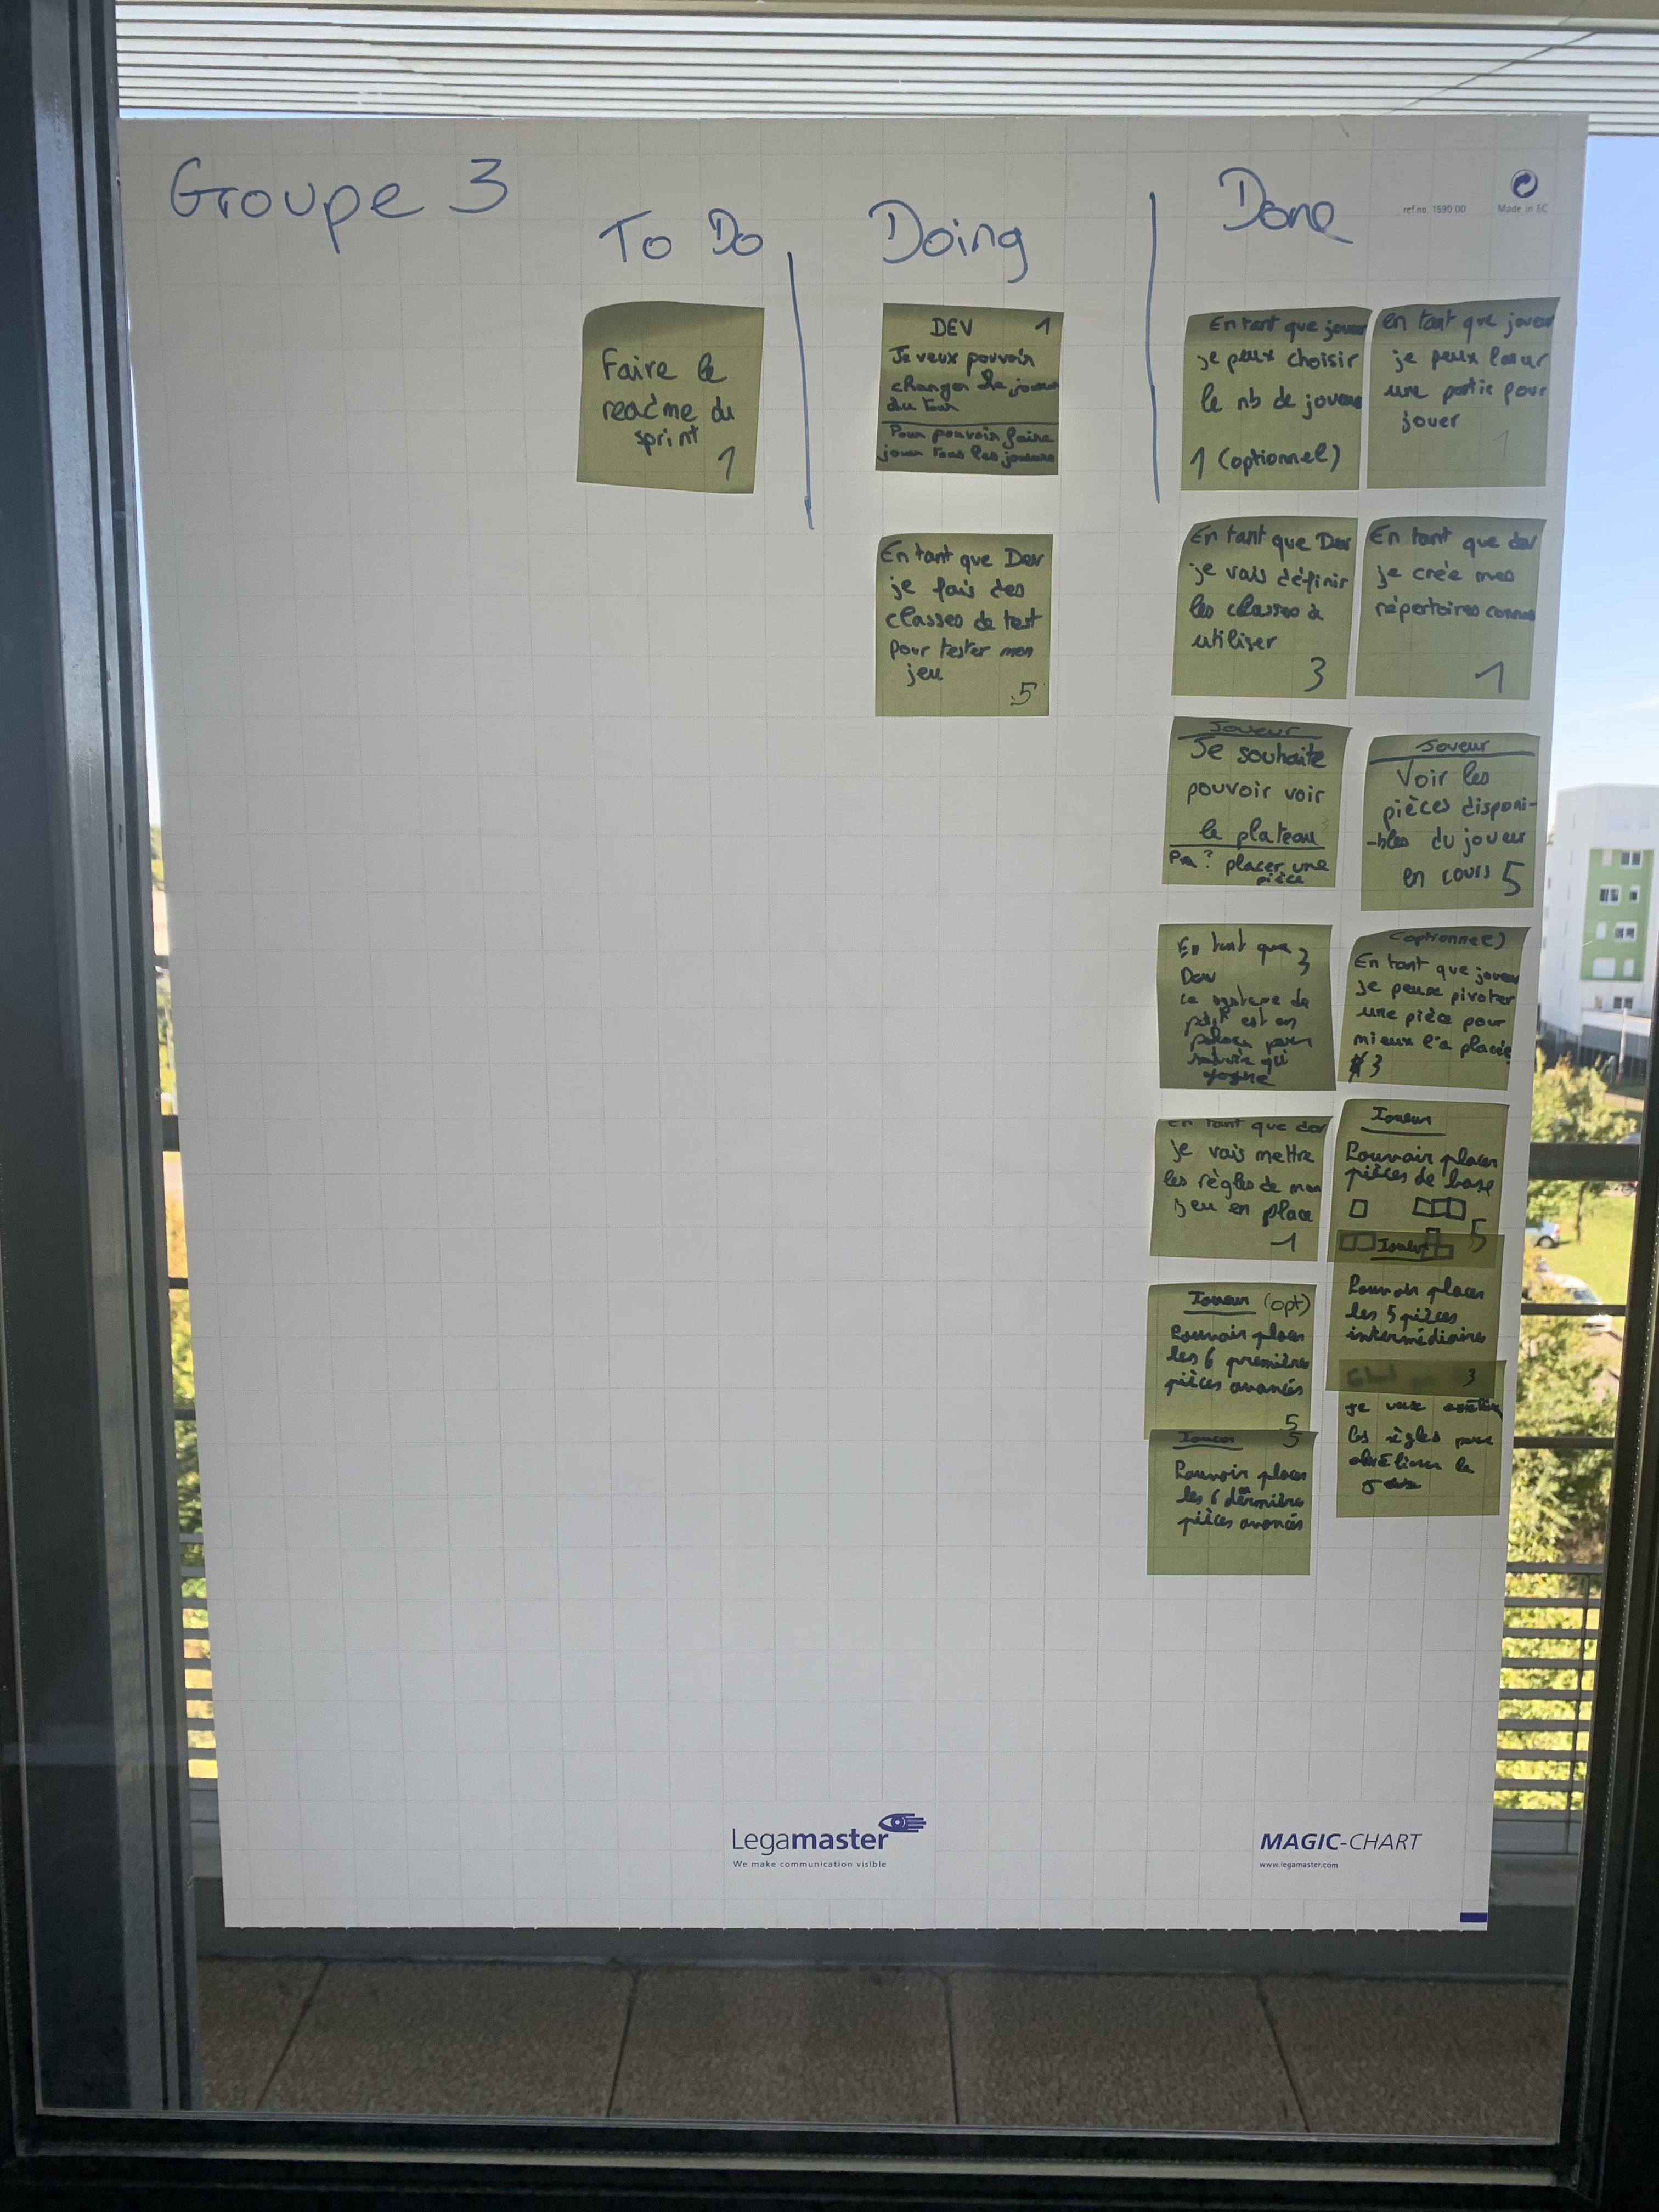 Groupe 3
To Do
Doing
Done
ref.no. 1590 00
Made in EC
Faire le
readme du
sprint
1
DEV 1
Je veux pouvoir
changer de joueur
du tour
Pour pouvoir faire
jouer tous les joueurs
En tant que Dev
je fais des
classes de test
pour tester mon
jeu
5
En tant que joueur
je peux choisir
le nb de joueurs
1 (optionnel)
en tant que joueur
je peux
une partie pour
jouer
1
En tant que Dev
je vais définir
les classes à
utiliser
3
En tant que dev
je crée mes
répertoires
1
Joueur
Je souhaite
pouvoir voir
le plateau
placer une
pièce
Joueur
Voir les
pièces disponi-
-bles du joueur
en cours 5
En tant que 3
Dev
le système de
est en
place pour
savoir qui
gagne
(optionnel)
En tant que joueur
je peux pivoter
une pièce pour
mieux l'a placée
3
En tant que dev
je vais mettre
les règles de mon
jeu en place
1
Joueur
Pouvoir placer
pièces de base
5
Joueur
Pouvoir placer
les 5 pièces
intermédiaires
3
je veux
les règles pour
améliorer le
Joueur (opt)
Pouvoir placer
les 6 première
pièces avancés
5
Joueur 5
Pouvoir placer
les 6 dernière
pièces avancés
Legamaster
We make communication visible
MAGIC-CHART
www.legamaster.com